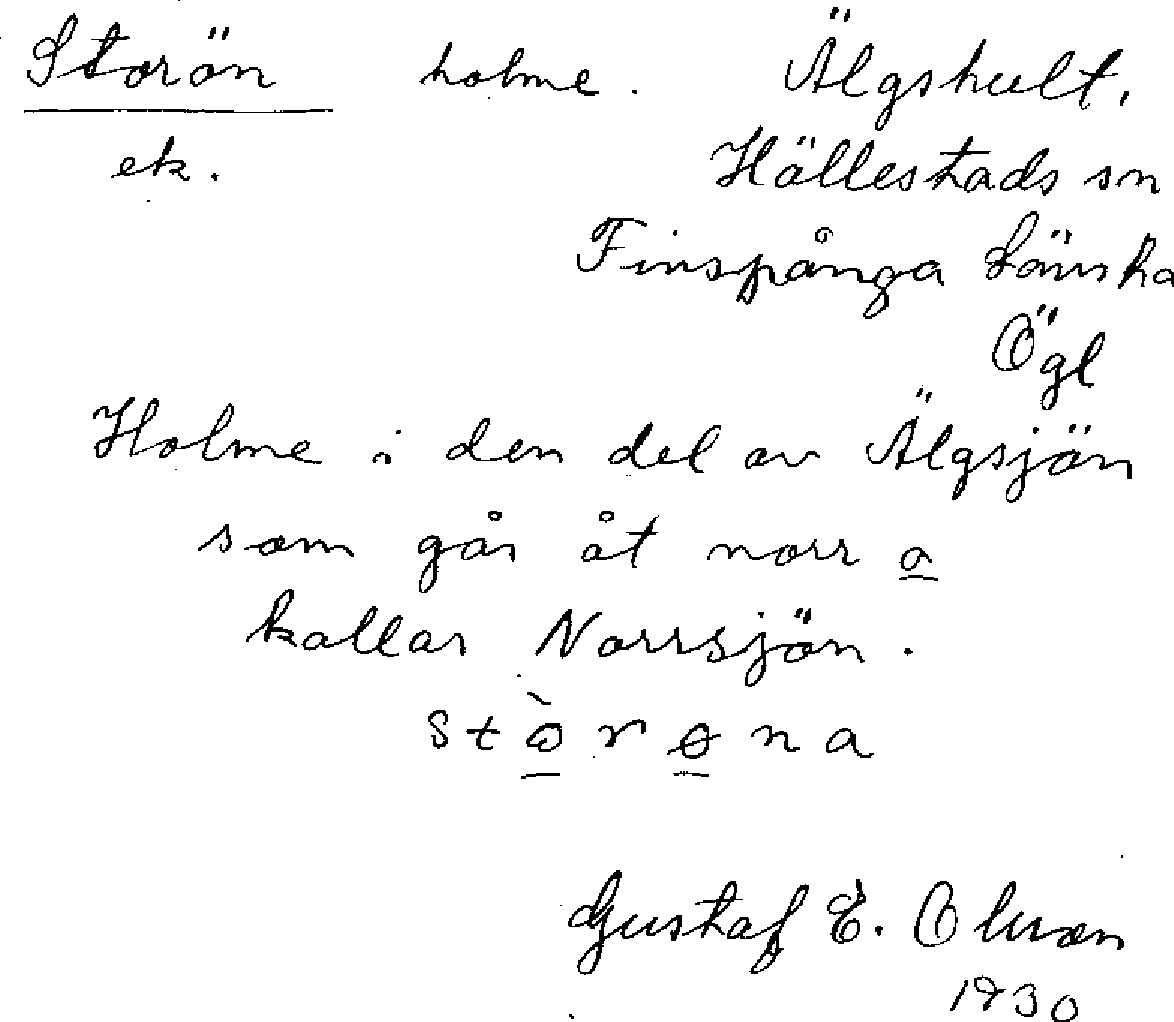 Storön holme. Älgshult.
ek. Hällestads sn
Finspånga Länsha
Ögl
Holme i den del av Älgsjön
som går åt norr o
kallas Norrsjön.
stòrøna
Gustaf E. Olsson
1930